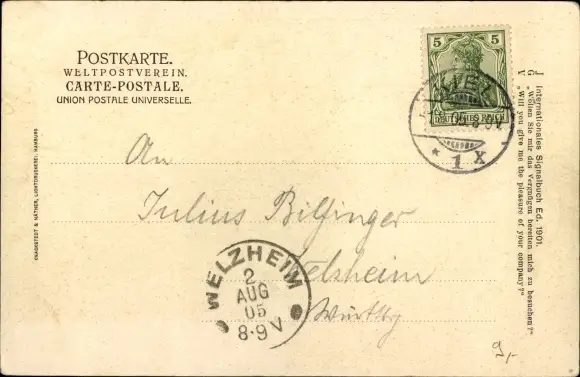 POSTKARTE.
WELTPOSTVEREIN.
CARTE-POSTALE.
UNION POSTALE UNIVERSELLE.
5 5
DEUTSCHES REICH
05. 8-9V
* 1 X
J Internationales Signalbuch Ed. 1901.
G „Wollen Sie mir das Vergnügen bereiten mich zu besuchen?"
V „Will you give me the pleasure of your company?"
KNACKSTEDT & NÄTHER, LICHTDRUCKEREI, HAMBURG
An
Julius Bilfinger
Welzheim
Württbg
WELZHEIM
2
AUG
05
8-9V